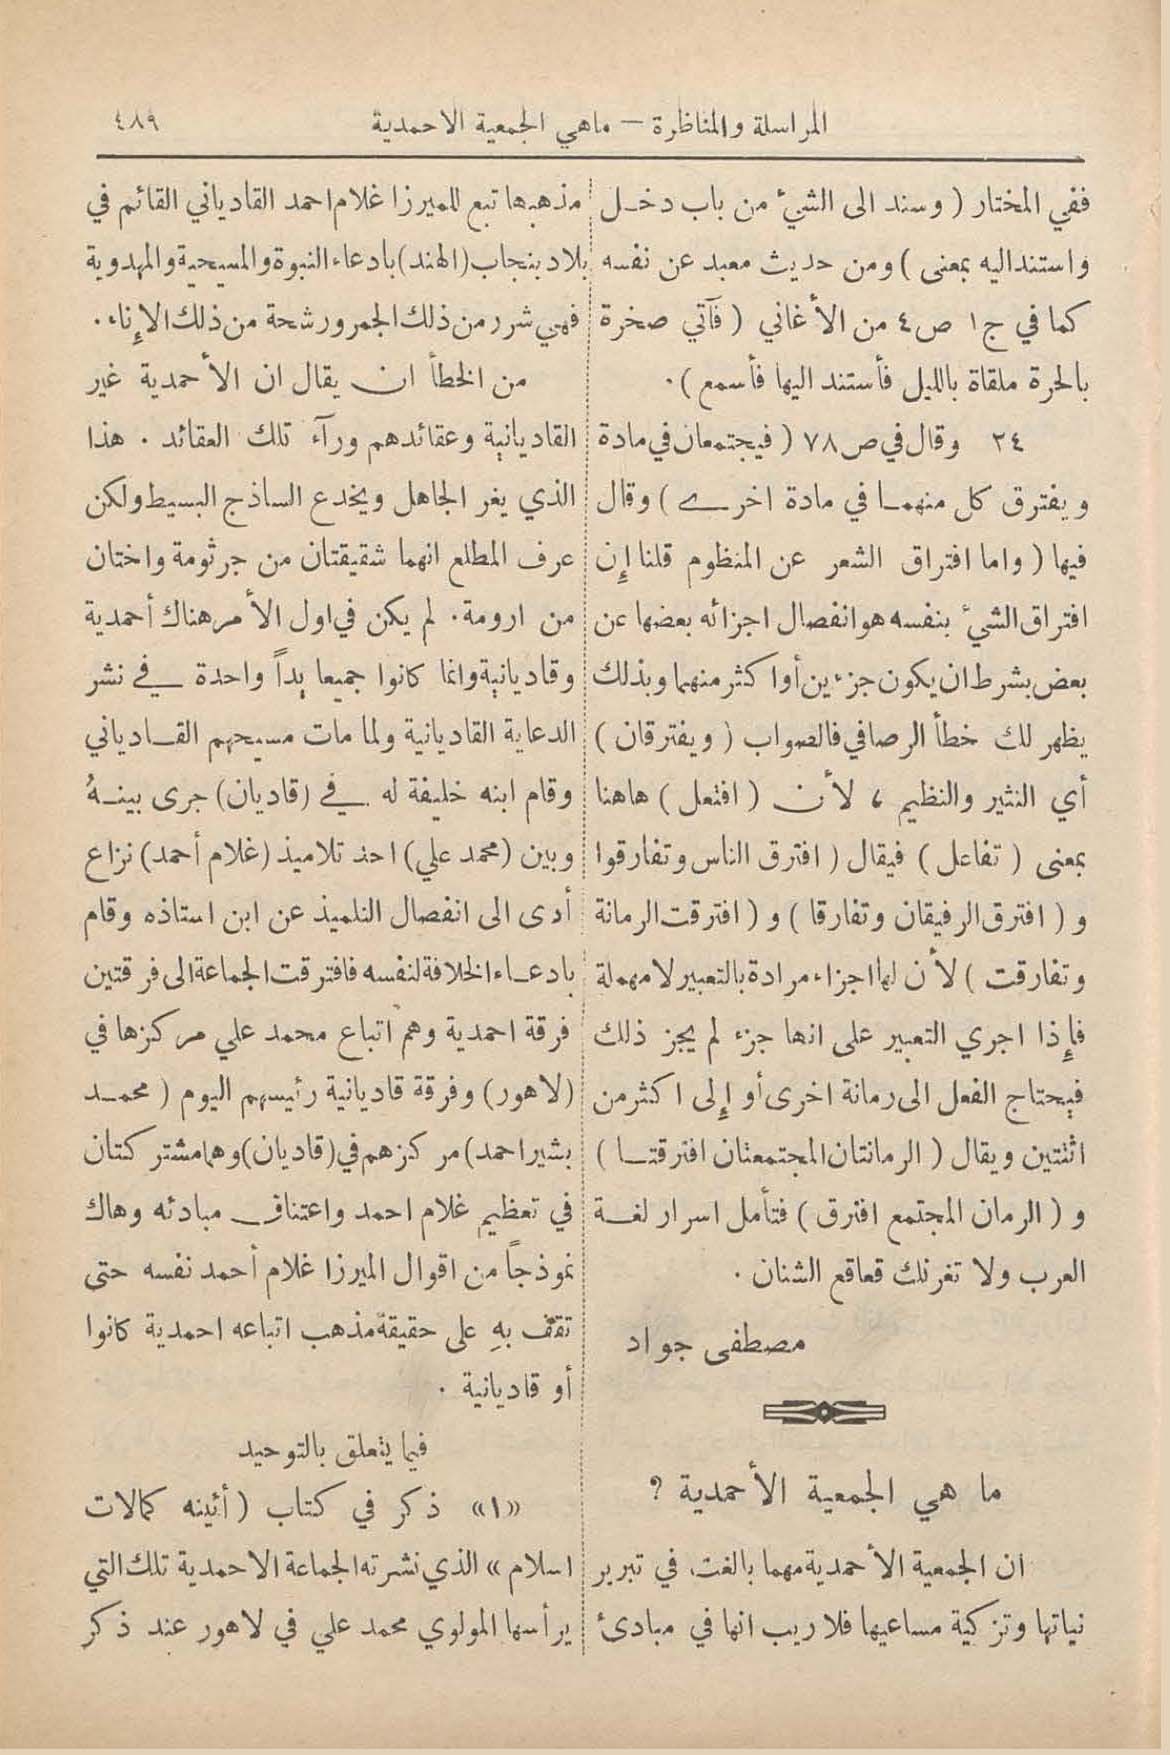 المراسلة والمناظرة — ماهي الجمعية الاحمدية
٤٨٩
ففي المختار ( وسند الى الشيء من باب دخل
واستند اليه بمعنى ) ومن حديث معبد عن نفسه
كما في ج١ ص٤ من الأغاني ( فآتي صخرة
بالحرة ملقاة بالليل فأستند اليها فأسمع ) .
٢٤ وقال في ص ٧٨ ( فيجتمعان في مادة
ويفترق كل منهما في مادة اخرى ) وقال
فيها ( واما افتراق الشعر عن المنظوم قلنا إن
افتراق الشيء بنفسه هو انفصال اجزائه بعضها عن
بعض بشرط ان يكون جزءين أو اكثر منهما وبذلك
يظهر لك خطأ الرصافي فالصواب ( ويفترقان )
أي النثير والنظيم ، لأن ( افتعل ) هاهنا
بمعنى ( تفاعل ) فيقال ( افترق الناس وتفارقوا
و ( افترق الرفيقان وتفارقا ) و ( افترقت الرمانة
وتفارقت ) لأن لها اجزاء مرادة بالتعبير لا مهملة
فإذا اجري التعبير على انها جزء لم يجز ذلك
فيحتاج الفعل الى رمانة اخرى أو إلى اكثر من
اثنتين ويقال ( الرمانتان المجتمعتان افترقتا )
و ( الرمان المجتمع افترق ) فتأمل اسرار لغة
العرب ولا تغرنك قعاقع الشنان .
مصطفى جواد
ما هي الجمعية الأحمدية ?
ان الجمعية الأحمدية مهما بالغت في تبرير
نياتها وتزكية مساعيها فلا ريب انها في مبادئ
مذهبها تبع للميرزا غلام احمد القادياني القائم في
بلاد بنجاب (الهند) بادعاء النبوة والمسيحية والمهدوية
فهي شرر من ذلك الجمر ورشحة من ذلك الإناء .
من الخطأ ان يقال ان الأحمدية غير
القاديانية وعقائدهم ورآء تلك العقائد . هذا
الذي يغر الجاهل ويخدع الساذج البسيط ولكن
عرف المطلع انهما شقيقتان من جرثومة واختان
من ارومة . لم يكن في اول الأمر هناك أحمدية
وقاديانية وانما كانوا جميعا يداً واحدة في نشر
الدعاية القاديانية ولما مات مسيحهم القادياني
وقام ابنه خليفة له في (قاديان) جرى بينهُ
وبين (محمد علي) احد تلاميذ (غلام أحمد) نزاع
أدى الى انفصال التلميذ عن ابن استاذه وقام
بادعاء الخلافة لنفسه فافترقت الجماعة الى فرقتين
فرقة احمدية وهم اتباع محمد علي مركزها في
(لاهور) وفرقة قاديانية رئيسهم اليوم ( محمد
بشير احمد) مركزهم في (قاديان) وهما مشتركتان
في تعظيم غلام احمد واعتناق مبادئه وهاك
نموذجاً من اقوال الميرزا غلام أحمد نفسه حتى
تقف بهِ على حقيقة مذهب اتباعه احمدية كانوا
أو قاديانية .
فيما يتعلق بالتوحيد
«١» ذكر في كتاب ( أئينه كمالات
اسلام » الذي نشرته الجماعة الاحمدية تلك التي
يرأسها المولوي محمد علي في لاهور عند ذكر